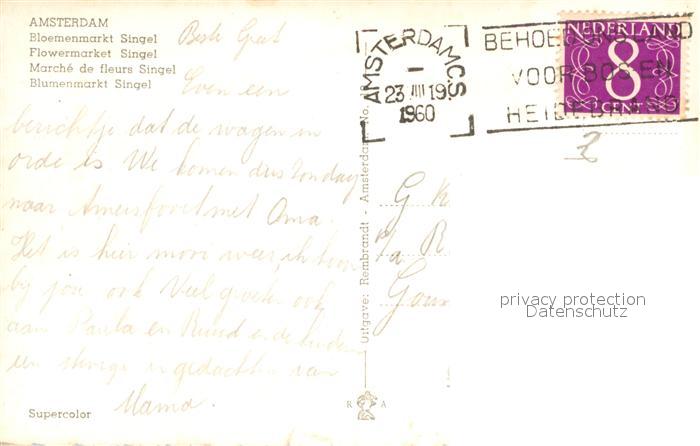 AMSTERDAM
Bloemenmarkt Singel
Flowermarket Singel
Marché de fleurs Singel
Blumenmarkt Singel
Beste Greet
Even een
berichtje dat de wagen in
orde is We komen dus Zondag
naar Amersfoort met Oma.
Het is hier mooi weer, ik hoop
bij jou ook Veel groeten ook
aan Paula en Ruud en de
een stevige in gedachten van
Mama.
Supercolor
Uitgave: Rembrandt - Amsterdam. No.
R A
AMSTERDAM C.S.
23 IIII 19
1960
BEHOED
VOOR BOS EN
HEIDE
NEDERLAND
8
CENT
G K
p/a R
Gou
privacy protection
Datenschutz